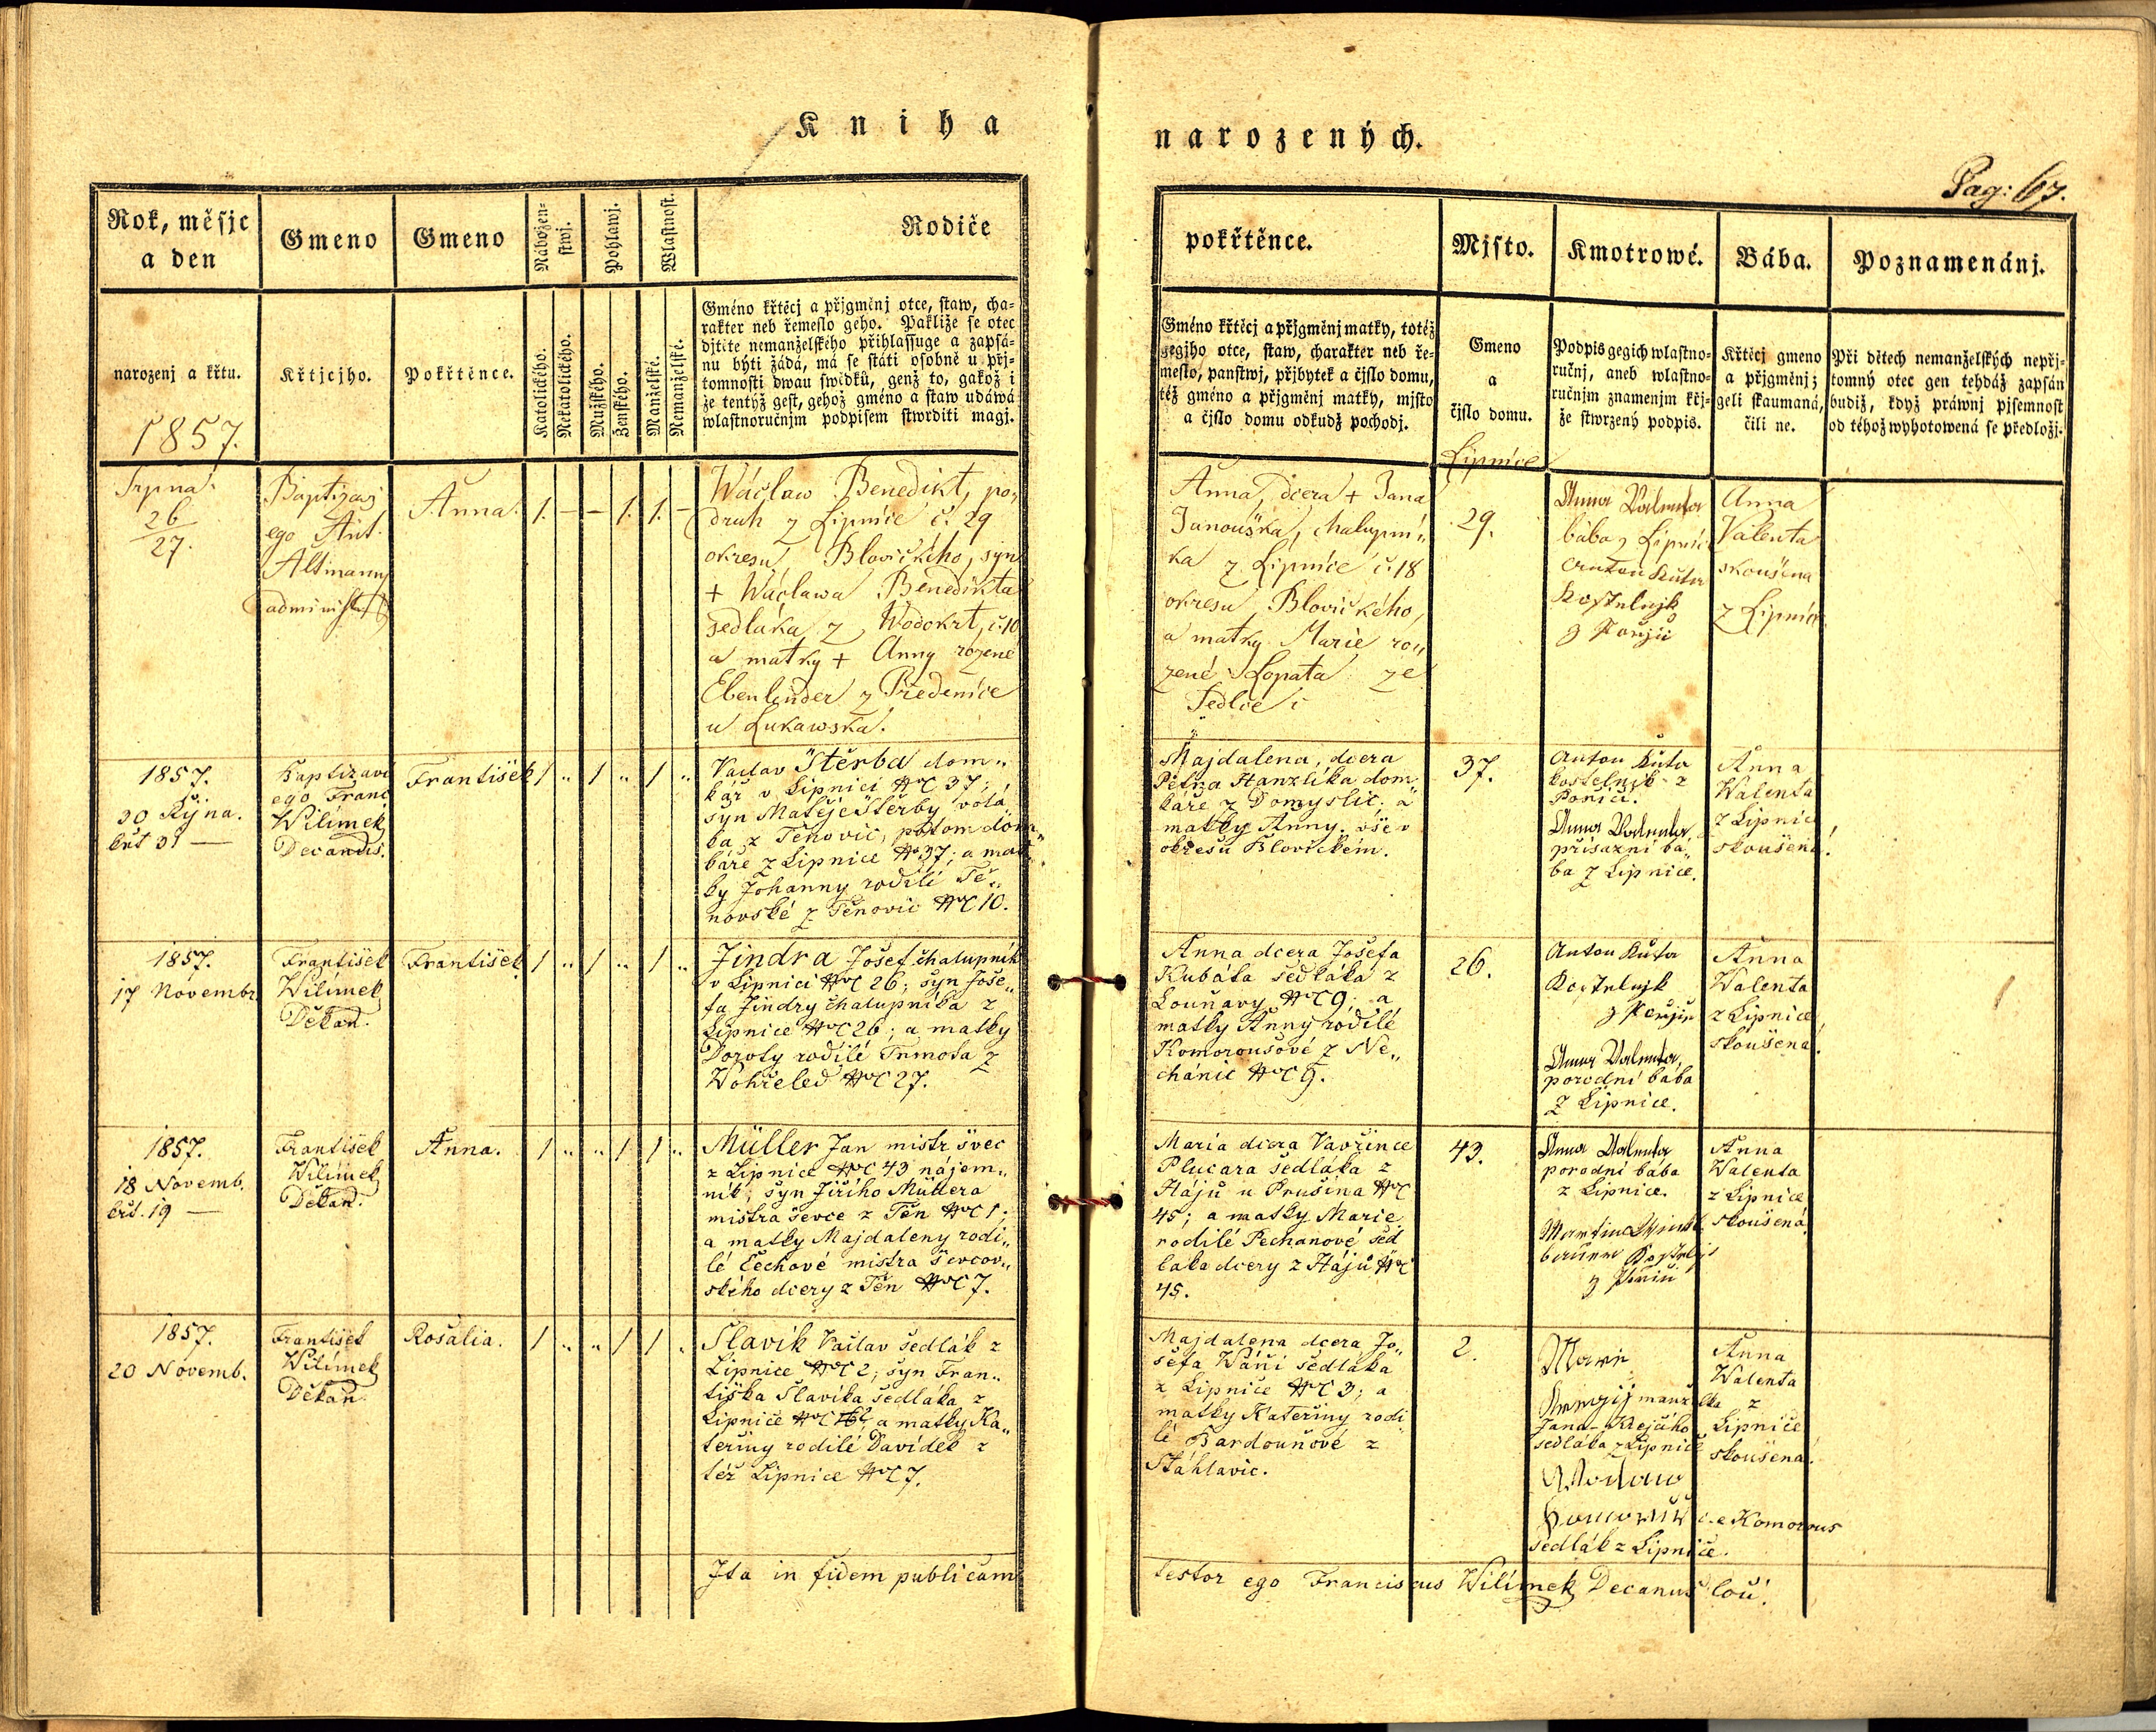 Kniha
narozených.
Pag: 67.
Rok, měsjc
a den
Gmeno
Gmeno
Nábožen-
stwj.
Pohlawj.
Wlastnost.
Rodiče
pokřtěnce.
Mjsto.
Kmotrowé.
Bába.
Poznamenánj.
narozenj a křtu.
1857.
Křtjcjho.
Pokřtěnce.
Katolického.
Nekatolického.
Mužského.
Ženského.
Manželské.
Nemanželské.
Gméno křtěcj a přjgměnj otce, staw, cha-
rakter neb řemeslo geho. Pakliže se otec
djtěte nemanželského přihlassuge a zapsá-
nu býti žádá, má se státi osobně u přj-
tomnosti dwau swědků, genž to, gakož i
že tentýž gest, gehož gméno a staw udáwá
wlastnoručnjm podpisem stwrditi magj.
Gméno křtěcj a přjgměnj matky, totéž
gegjho otce, staw, charakter neb ře-
meslo, panstwj, přjbytek a čjslo domu,
též gméno a přjgměnj matky, mjsto
a čjslo domu odkudž pocházj.
Gmeno
a
čjslo domu.
Lipnice
Podpis gegich wlastno-
ručnj, aneb wlastno-
ručnjm znamenjm křj-
že stwrzený podpis.
Křtěcj gmeno
a přjgměnj;
geli skaumaná,
čili ne.
Při dětech nemanželských nepřj-
tomný otec gen tehdáž zapsán
budiž, když práwnj pjsemnost
od téhož wyhotowená se předložj.
Srpna
26
27.
Baptizavi
ego Ant.
Altmann
administr.
Anna. 1. – – 1. 1. –
Wáclaw Benedikt, po„
druh z Lipnice č. 29
okresu Blovického, syn
+ Wáclawa Benedikta
sedláka z Wodokrt, č. 10
a matky + Anny rozené
Ebenlender z Předenice
u Lukawska.
Anna, dcera + Jana
Janouška, chalupní„
ka z Lipnice č. 18
okresu Blovického,
a matky Marie ro„
zené Lopata ze
Sedlce
29.
Anna Valenta
bába z Lipnic
Anton Kuta
Kostelnjk
z Pořjčí
Anna
Valenta
skoušena
z Lipnice
1857.
30 Října.
křt 31 —
Baptizavi
ego Franc
Wilímek
Decanus.
František 1 „ 1 „ 1 „
Václav Štěrba dom„
kář v Lipnici NC 37;
syn Matěje Štěrby volá„
ka z Těnovic, potom dom„
káře z Lipnice N 37; a mat„
ky Johanny rodilé Tě„
novské z Těnovic NC 10.
Majdalena, dcera
Petra Hanzlíka dom„
káře z Domyslic; a
matky Anny, vše v
okresu Blovickém.
37.
Anton Kuta
kostelník z
Poříčí.
Anna Valenta
přísazní bá„
ba z Lipnice.
Anna
Walenta
z Lipnic
skoušená!
1857.
17 Novembr.
František
Wilímek
Děkan.
František 1 „ 1 „ 1 „
Jindra Josef chalupník
v Lipnici NC 26; syn Jose„
fa Jindry chalupníka z
Lipnice NC 26; a matky
Doroty rodilé Tumofa z
Wohřeled NC 27.
Anna dcera Josefa
Kubáta sedláka z
Louňavy NC 9; a
matky Anny rodilé
Komoroušové z Ne„
chánic NC 9.
26.
Anton Kuta
Kostelnjk
z Pořjčí
Anna Valenta,
porodní bába
z Lipnice.
Anna
Walenta
z Lipnice
skoušená!
1857.
18 Novemb.
křt. 19 —
František
Wilímek
Děkan.
Anna. 1 „ „ 1 1 „
Müller Jan mistr švec
z Lipnice NC 43 nájem„
ník; syn Jiřího Müllera
mistra ševce z Těn NC 1;
a matky Majdaleny rodi„
lé Čechové mistra ševcov„
ského dcery z Těn NC 7.
Maria dcera Vavřince
Plucara sedláka z
Hájů u Prusina NC
45; a matky Marie
rodilé Pechanové sed
láka dcery z Hájů NC
45.
43.
Anna Valenta
porodní bába
z Lipnice.
Martin
Kostelnj
Anna
Walenta
z Lipnice
skoušená
1857.
20 Novemb.
František
Wilímek
Děkan.
Rosalia. 1 „ „ 1 1 „
Slavík Václav sedlák z
Lipnice NC 2; syn Fran„
tiška Slavíka sedláka z
Lipnice NC a matky Ka„
teřiny rodilé Davídek z
též Lipnice NC 7.
Majdalena dcera Jo„
sefa Wáni sedláka
z Lipnice NC 3; a
matky Kateřiny rodi
lé Bardouňové z
Šťáhlavic.
2.
Marie
manželka
Jana Krejčího
sedláka z Lipnice
c.e Komorous
sedlák z Lipnice.
Anna
Walenta
z
Lipnice
skoušená!
Ita in fidem publicam testor ego Franciscus Wilímek Decanus loci!